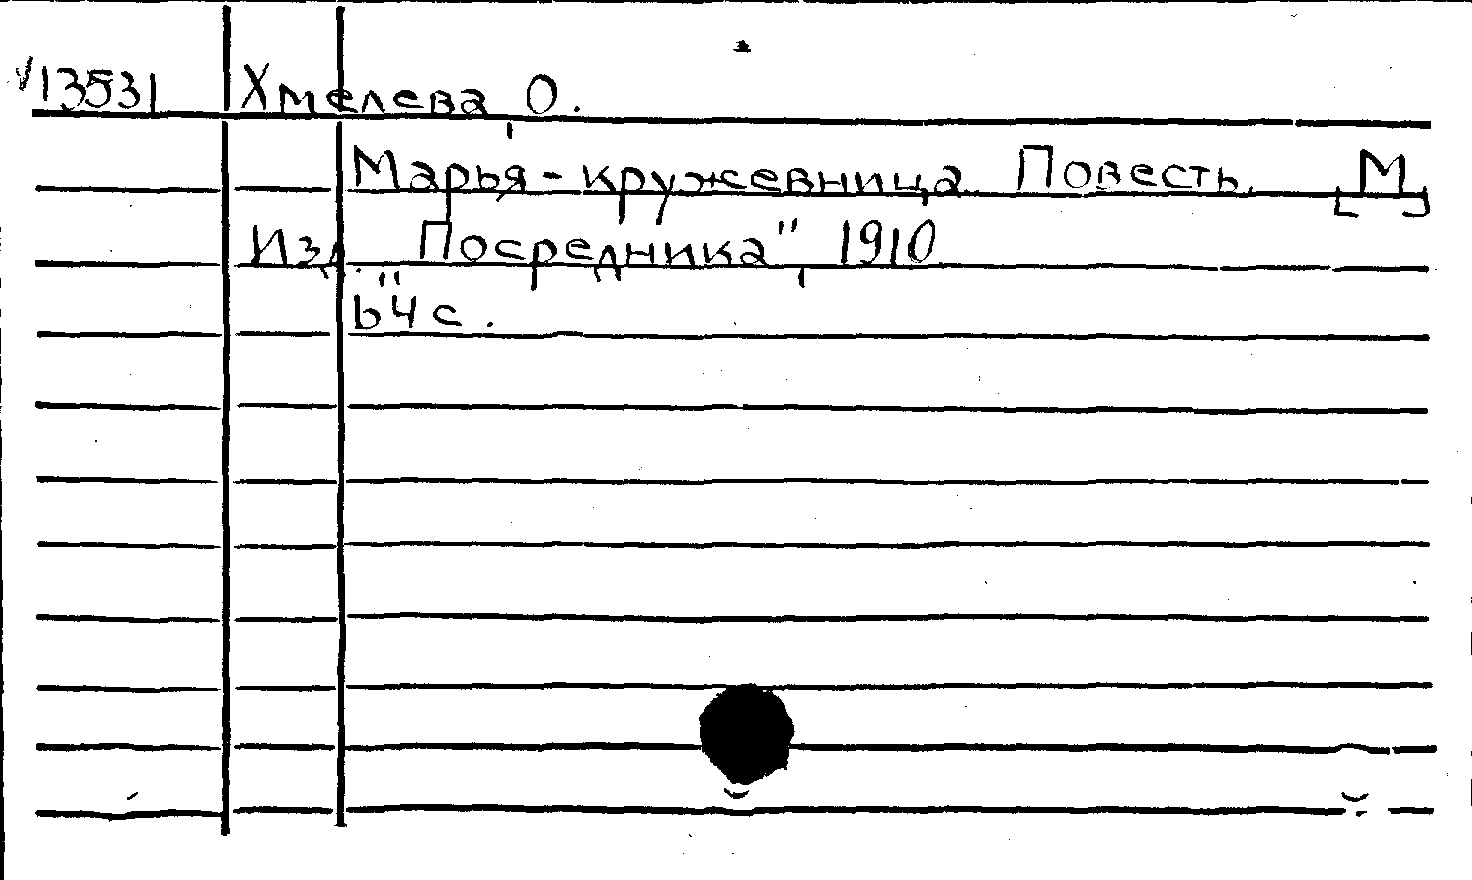 √13531 Хмелева, О.
Марья-кружевница. Повесть. [М]
Изд. „Посредника", 1910
64 с.